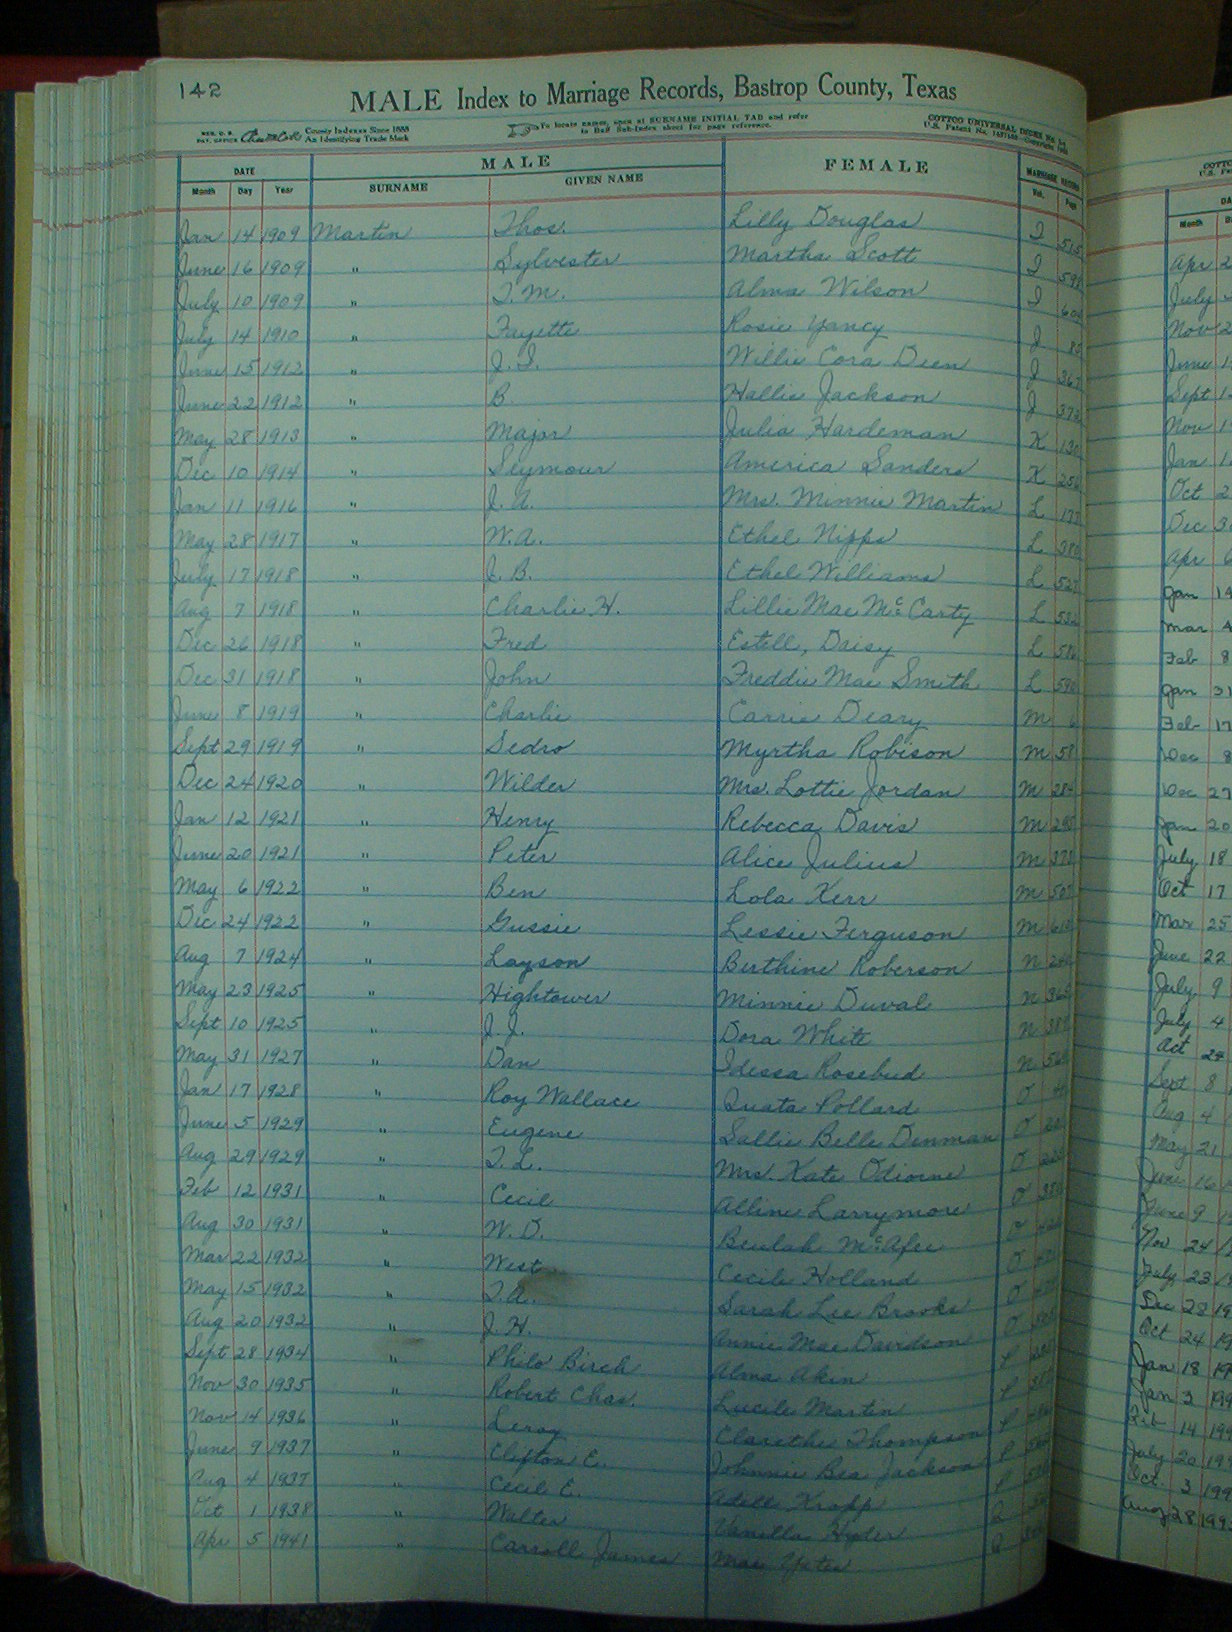 142
MALE Index to Marriage Records, Bastrop County, Texas
County Indexes Since 1888
An Identifying Trade Mark
To locate names, open at SURNAME INITIAL TAB and refer
to Buff Sub-Index sheet for page reference.
COTTCO UNIVERSAL INDEX
U.S. Patent No.
DATE MALE FEMALE MARRIAGE RECORD
Month Day Year SURNAME GIVEN NAME Vol. Page
Jan 14 1909 Martin Thos. Lilly Douglas I 515
June 16 1909 " Sylvester Martha Scott I
July 10 1909 " T.M. Alma Wilson I
July 14 1910 " Fayette Rosie Yancy J
June 15 1912 " J.I. Willie Cora Deen J
June 22 1912 " B Hallie Jackson J
May 28 1913 " Major Julia Hardeman K 130
Dec 10 1914 " Seymour America Sanders K 256
Jan 11 1916 " J.A. Mrs. Minnie Martin L
May 28 1917 " W.A. Ethel Nipps L 380
July 17 1918 " J.B. Ethel Williams L
Aug 7 1918 " Charlie H. Lillie Mae McCarty L 532
Dec 26 1918 " Fred Estell, Daisy L
Dec 31 1918 " John Freddie Mae Smith L 590
June 8 1919 " Charlie Carrie Deary M 6
Sept 29 1919 " Sedro Myrtha Robison M 58
Dec 24 1920 " Wilder Mrs. Lottie Jordan M 284
Jan 12 1921 " Henry Rebecca Davis M
June 20 1921 " Peter Alice Julius M
May 6 1922 " Ben Lola Kerr M 507
Dec 24 1922 " Gussie Lessie Ferguson M
Aug 7 1924 " Layson Berthine Roberson N
May 23 1925 " Hightower Minnie Duval N
Sept 10 1925 " J.J. Dora White N
May 31 1927 " Dan Idessa Rosebud N
Jan 17 1928 " Roy Wallace Quata Pollard O
June 5 1929 " Eugene Sallie Belle Denman O
Aug 29 1929 " T.L. Mrs. Kate Odiorne O
Feb 12 1931 " Cecil Alline Larrymore O
Aug 30 1931 " W.D. Beulah McAfee O
Mar 22 1932 " West Cecile Holland O
May 15 1932 " T.A. Sarah Lee Brooks O
Aug 20 1932 " J.H. Annie Mae Davidson O
Sept 28 1934 " Philo Birch Alma Akin P
Nov 30 1935 " Robert Chas. Lucile Martin P
Nov 14 1936 " Leroy Clarethe Thompson P
June 9 1937 " Clifton E. Johnnie Bea Jackson P
Aug 4 1937 " Cecil E. Adell Krapp P
Oct 1 1938 " Walter Vanilla Hyder Q
Apr 5 1941 " Carroll James Mae Yates Q
Month
Apr 2
July
Nov 2
June 1
Sept 1
Nov 1
Jan 1
Oct 2
Dec 3
Apr 6
Jan 14
Mar 4
Feb 8
Jan 31
Feb 17
Dec 8
Dec 27
Jan 20
July 18
Oct 17
Mar 25
June 22
July 9
July 4
Oct 24
Sept 8
Aug 4
May 21
June 16
June 9
Nov 24
July 23
Dec 28 19
Oct 24 19
Jan 18 19
Jan 3 199
Feb 14 199
July 20 199
Oct. 3 199
Aug 28 199